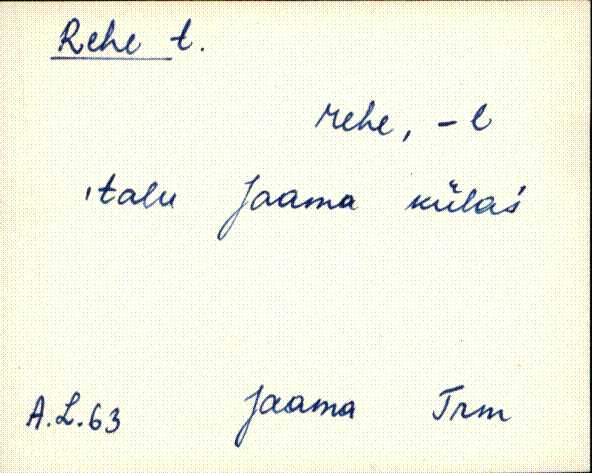 Rehe t.
rehe, -l
'talu Jaama külaś
A.L.63 Jaama Trm